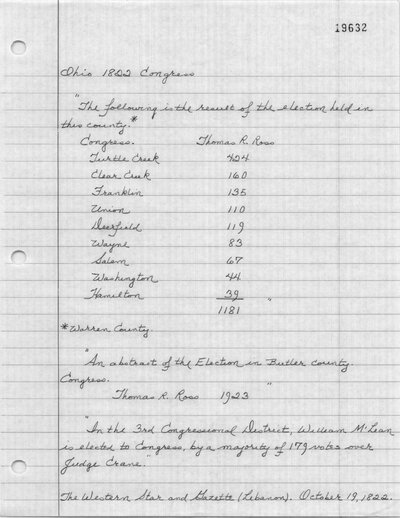 19632
Ohio 1822 Congress
"The following is the result of the election held in
this county.*
Congress. Thomas R. Ross
Turtle Creek 424
Clear Creek 160
Franklin 135
Union 110
Deerfield 119
Wayne 83
Salem 67
Washington 44
Hamilton 39 "
1181
*Warren County.
"An abstract of the Election in Butler County.
Congress.
Thomas R. Ross 1923 "
"In the 3rd Congressional District, William McLean
is elected to Congress, by a majority of 179 votes over
Judge Crane."
The Western Star and Gazette (Lebanon). October 19, 1822.